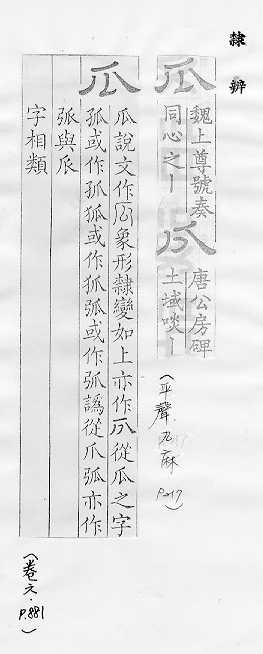 隸辨
瓜 魏上尊號奏
同心之丨
𤓰 唐公房碑
土域啖丨
(平聲九麻 P.217)
瓜
瓜說文作𤓰象形隸變如上亦作𤓰從瓜之字
孤或作孤狐或作狐弧或作弧譌從爪弧亦作
弧與𠂢
字相類
(卷六.P.881)